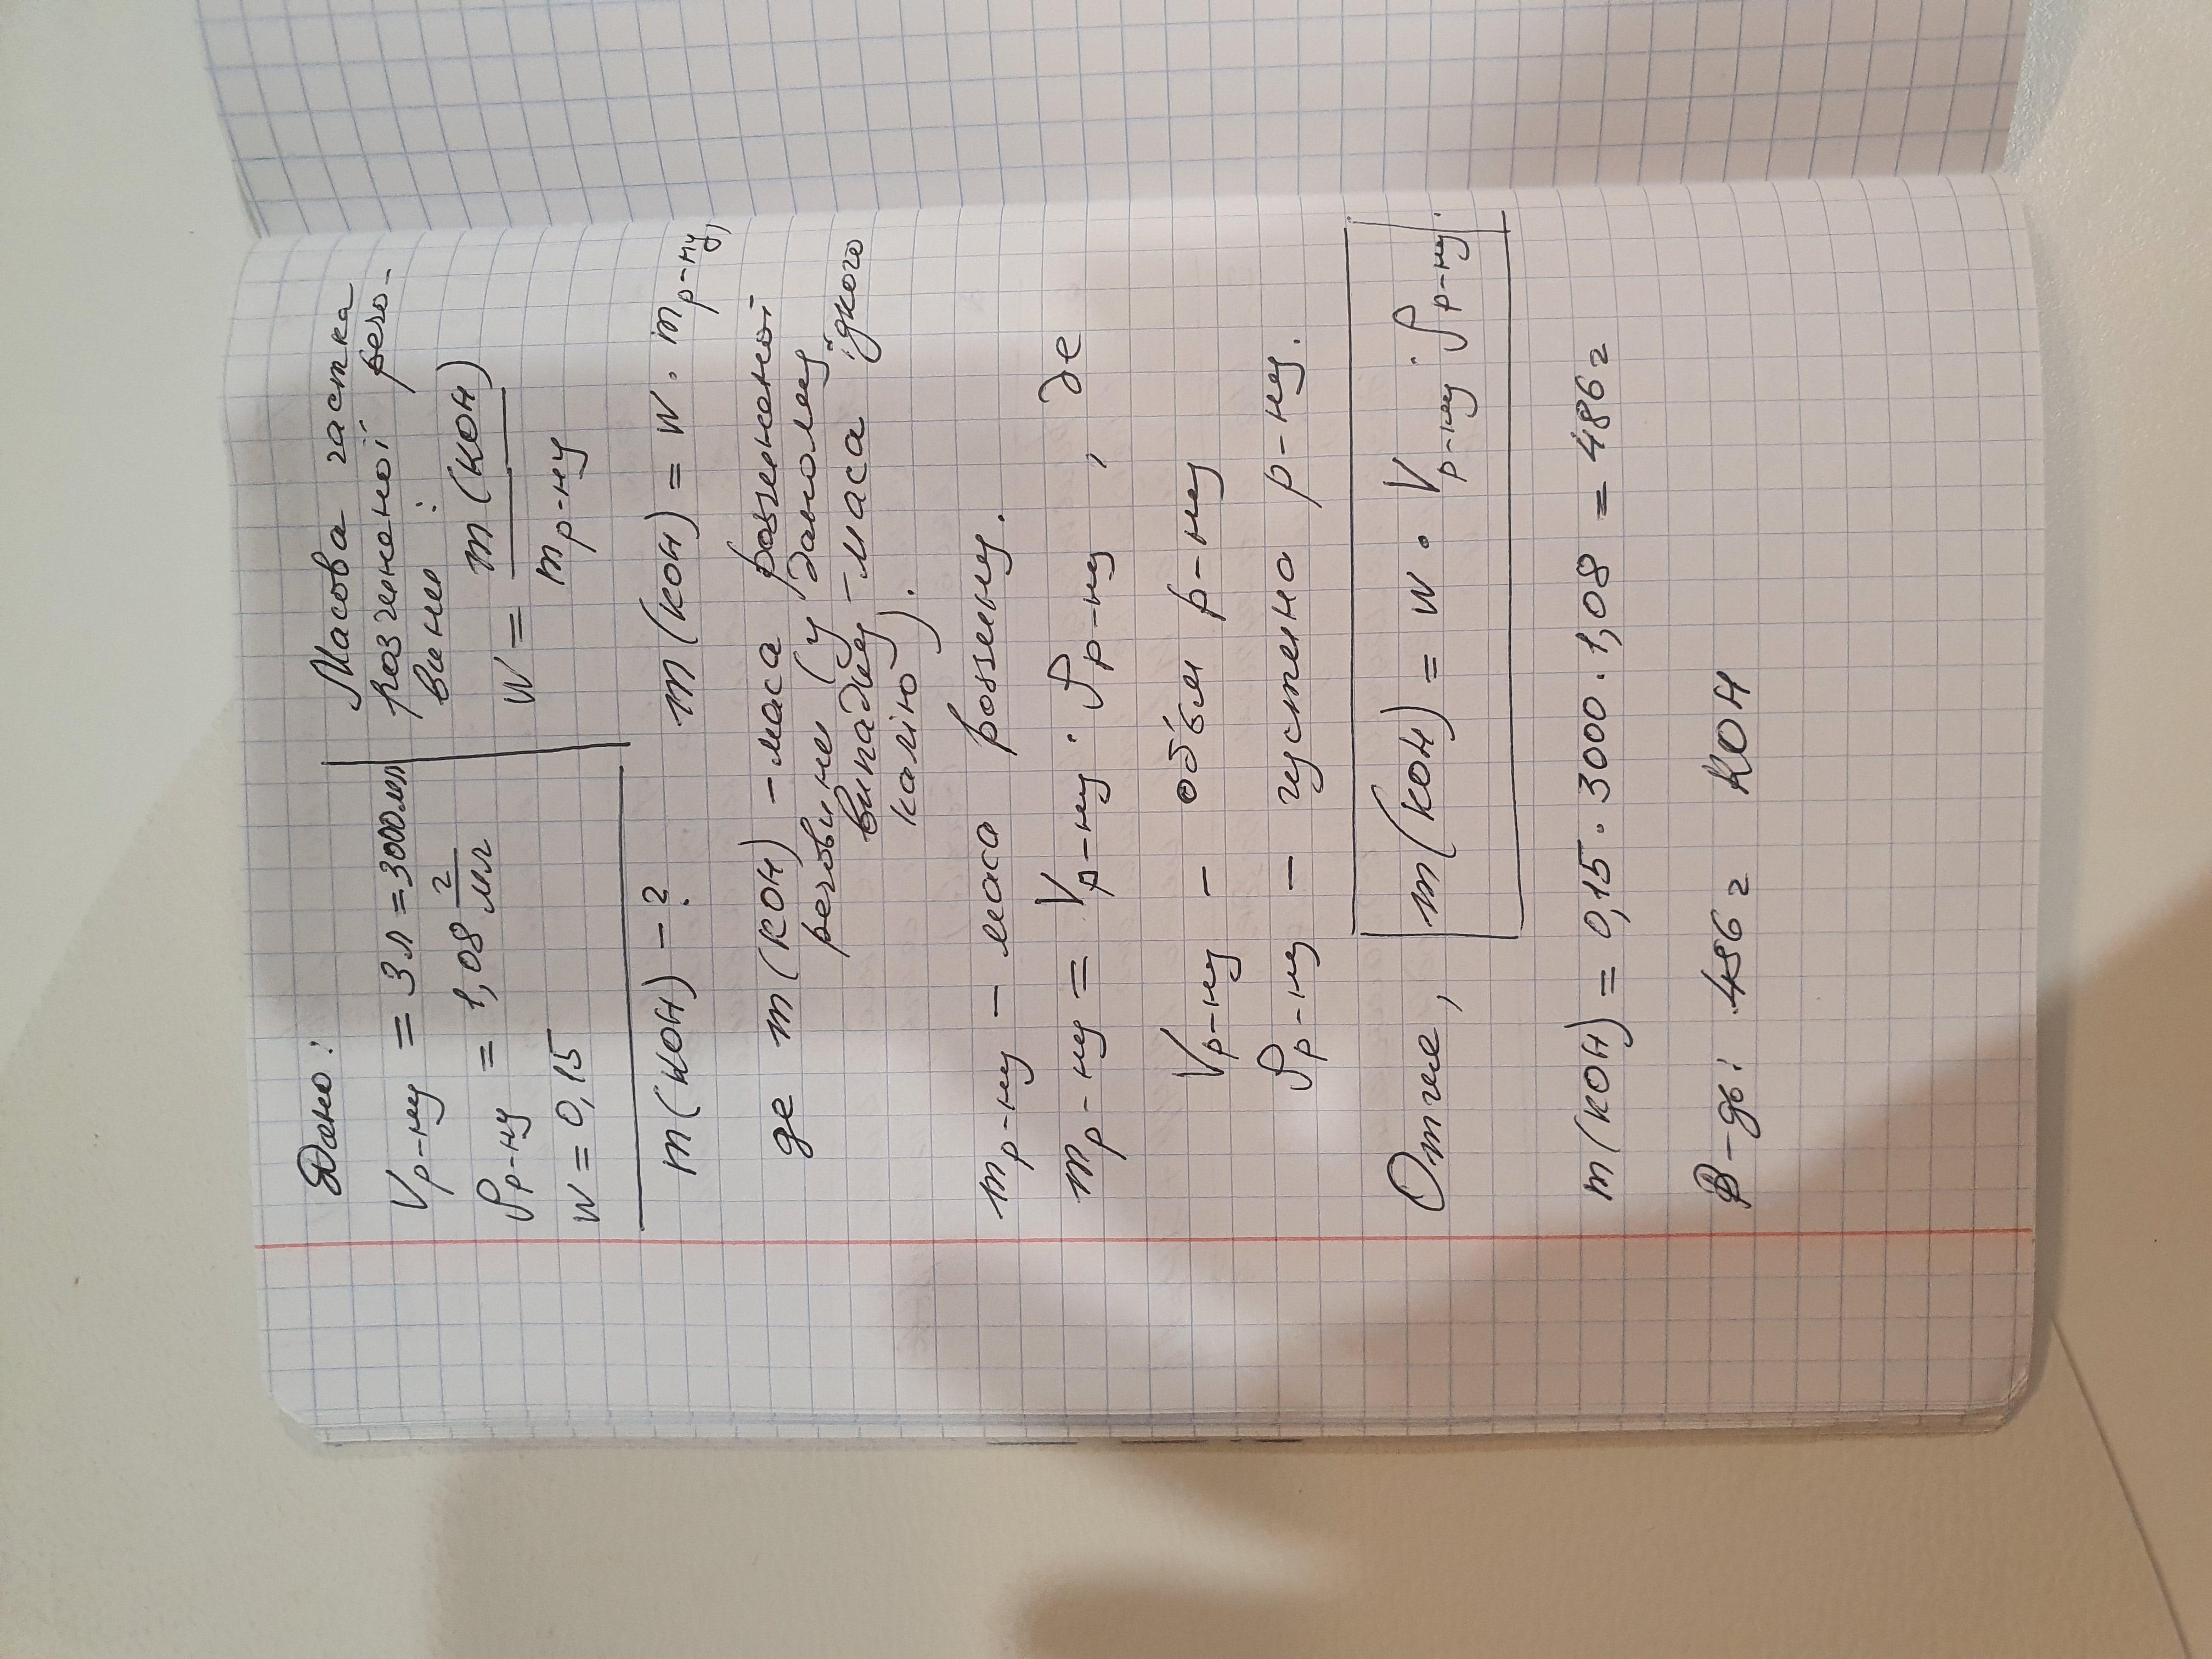 Дано:
Vр-ну = 3 л = 3000 мл
ρр-ну = 1,08 г/мл
w = 0,15
m(KOH) - ?
Масова частка
розчиненої речо-
вини:
w = m(KOH) / mр-ну
m(KOH) = w · mр-ну,
де m(KOH) - маса розчиненої
речовини (у даному
випадку - маса їдкого
калію).
mр-ну - маса розчину.
mр-ну = Vр-ну · ρр-ну, де
Vр-ну - об'єм р-ну
ρр-ну - густина р-ну.
Отже, m(KOH) = w · Vр-ну · ρр-ну.
m(KOH) = 0,15 · 3000 · 1,08 = 486 г
В-дь: 486 г KOH